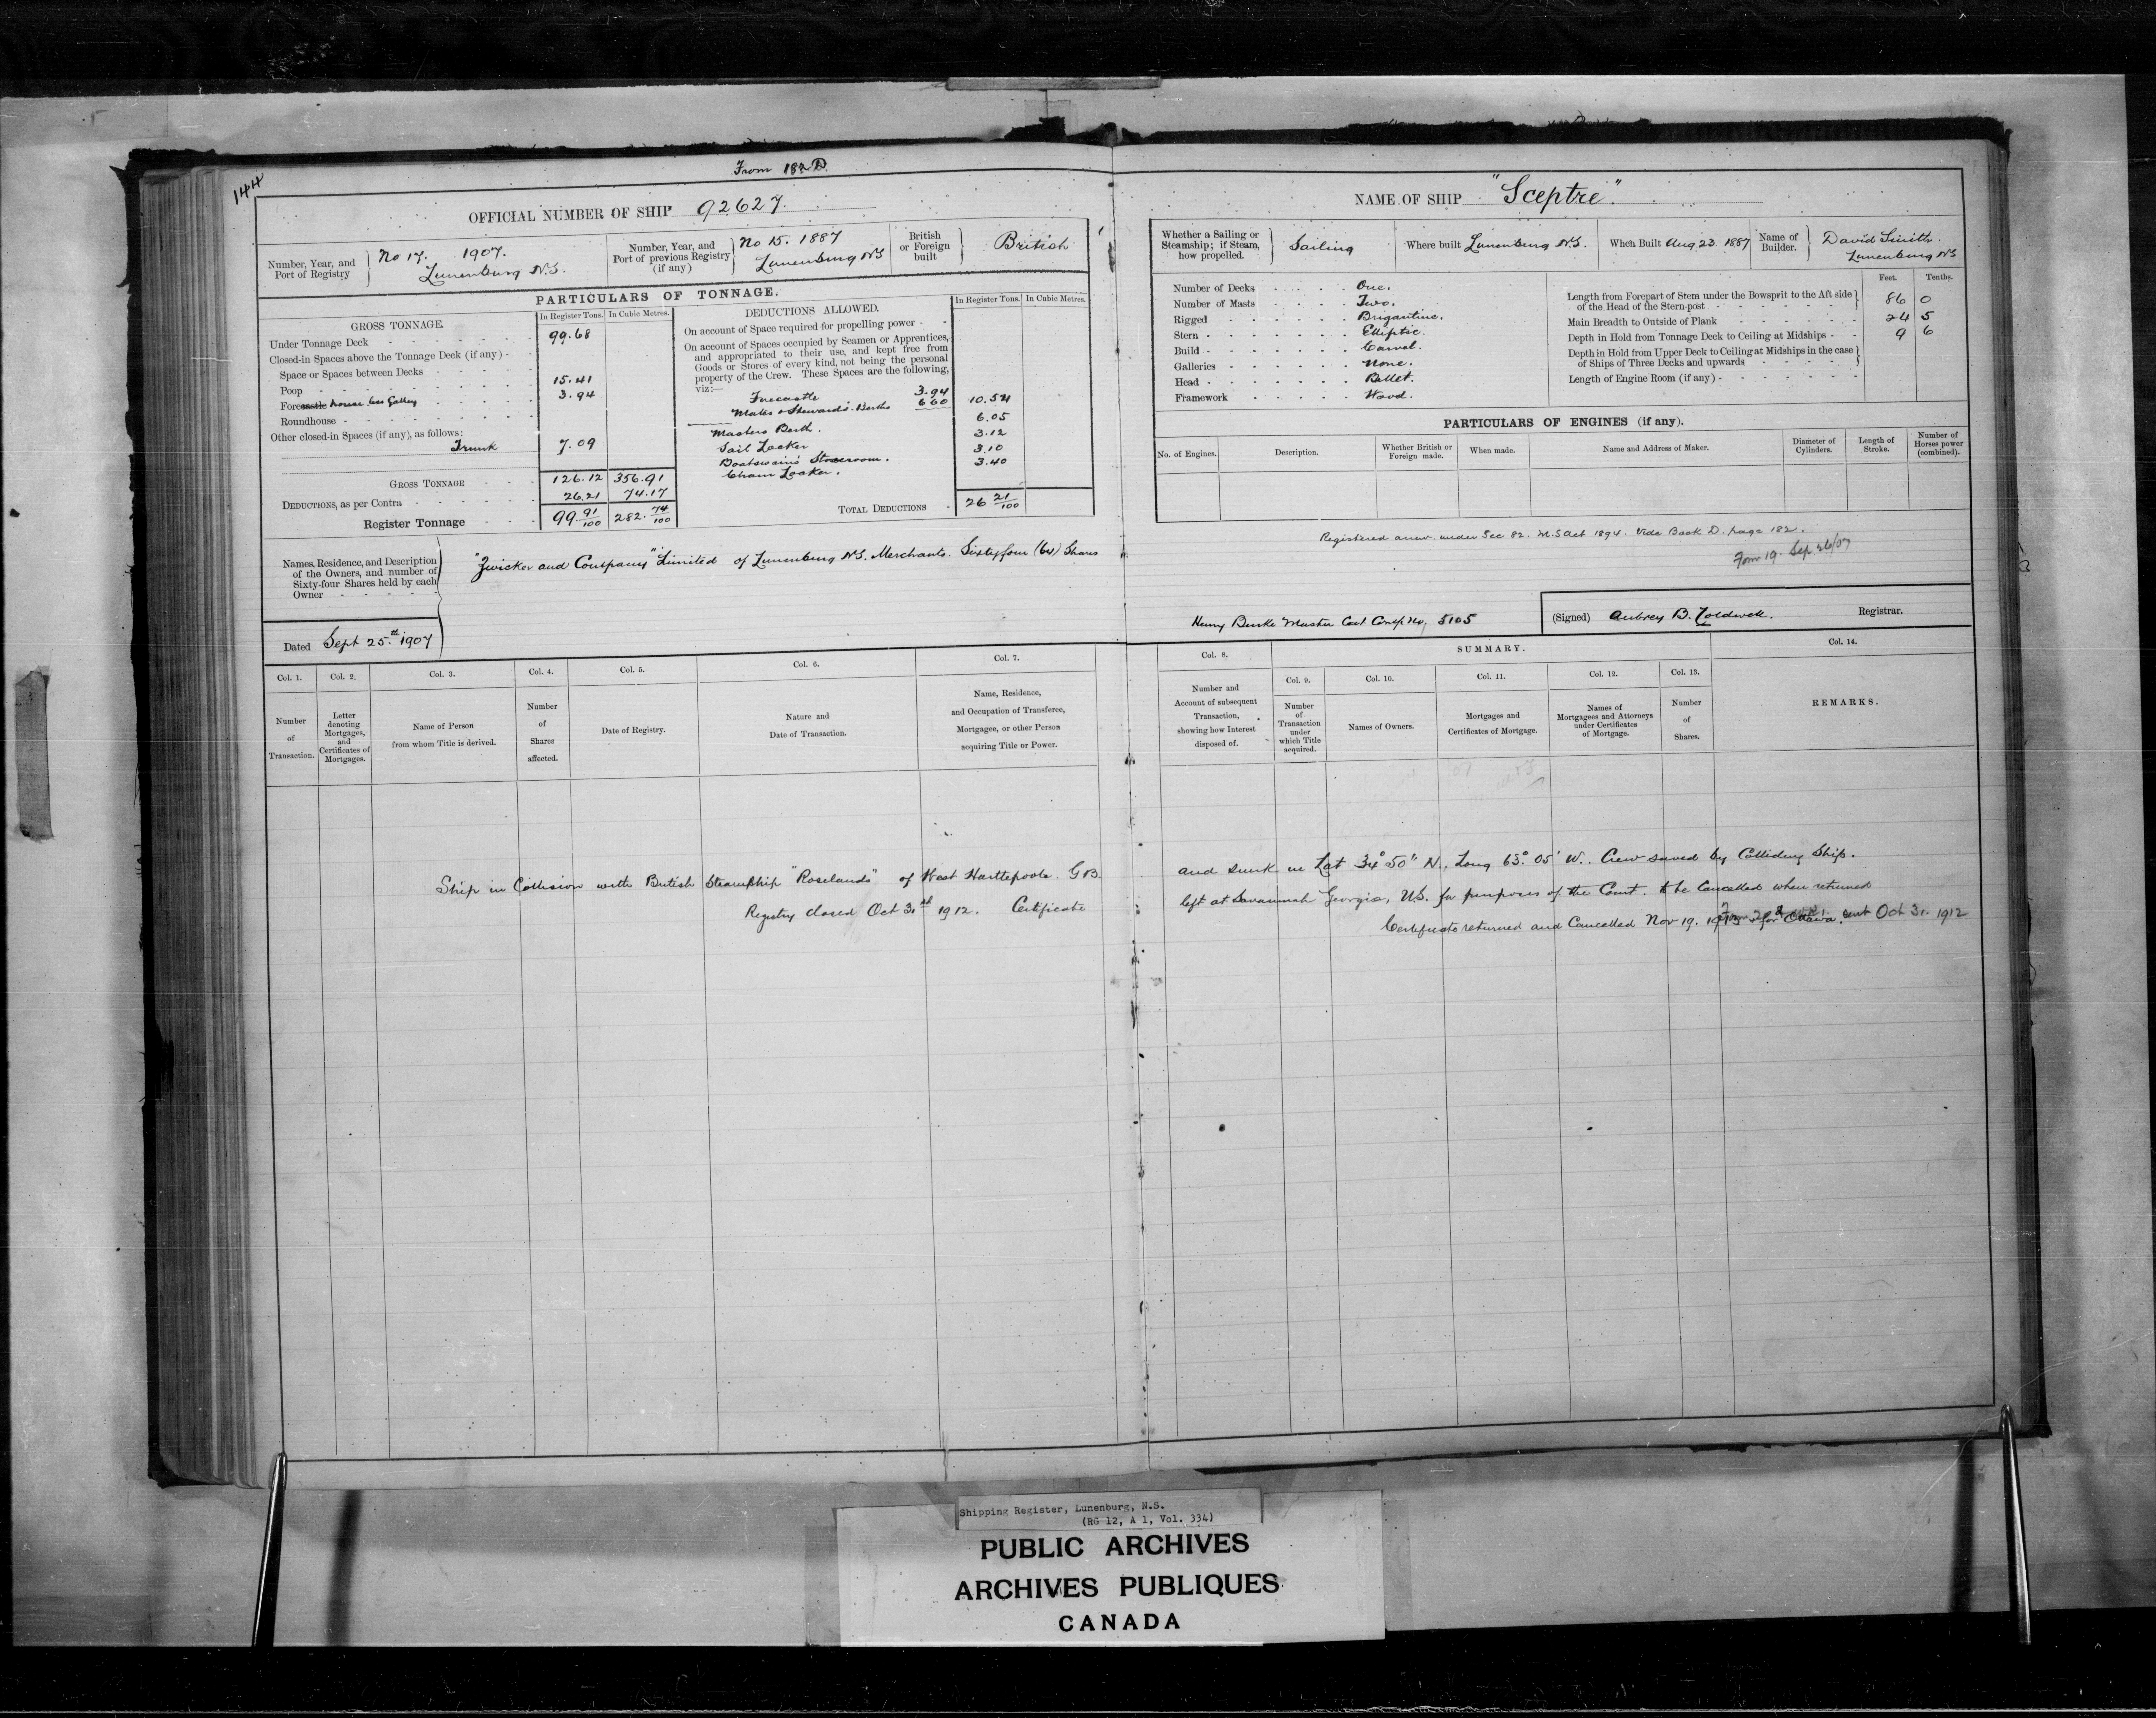 144
From 182 D.
OFFICIAL NUMBER OF SHIP 92627.
Number, Year, and Port of Registry } No 17. 1907. Lunenburg N.S.
Number, Year, and Port of previous Registry (if any) } No 15. 1887 Lunenburg NS
British or Foreign built } British
PARTICULARS OF TONNAGE.
GROSS TONNAGE.
In Register Tons. In Cubic Metres.
Under Tonnage Deck - 99.68
Closed-in Spaces above the Tonnage Deck (if any) -
Space or Spaces between Decks -
Poop - 15.41
Forecastle house less Galley - 3.94
Roundhouse -
Other closed-in Spaces (if any), as follows:
Trunk 7.09
GROSS TONNAGE - 126.12 356.91
DEDUCTIONS, as per Contra - 26.21 74.17
Register Tonnage - 99 91/100 282. 74/100
DEDUCTIONS ALLOWED.
In Register Tons. In Cubic Metres.
On account of Space required for propelling power -
On account of Spaces occupied by Seamen or Apprentices,
and appropriated to their use, and kept free from
Goods or Stores of every kind, not being the personal
property of the Crew. These Spaces are the following,
viz:—
Forecastle 3.94
Mates & Stewards. Berths 6.60 10.54
Masters Berth. 6.05
Sail Locker 3.12
Boatswain's Storeroom. 3.10
Chain Locker. 3.40
TOTAL DEDUCTIONS - 26 21/100
Names, Residence, and Description
of the Owners, and number of
Sixty-four Shares held by each
Owner -
"Zwicker and Company" Limited of Lunenburg N.S. Merchants. Sixtyfour (64) Shares
Dated Sept 25.th 1907
Col. 1. Col. 2. Col. 3. Col. 4. Col. 5. Col. 6. Col. 7.
Number of Transaction.
Letter denoting Mortgages, and Certificates of Mortgages.
Name of Person from whom Title is derived.
Number of Shares affected.
Date of Registry.
Nature and Date of Transaction.
Name, Residence, and Occupation of Transferee, Mortgagee, or other Person acquiring Title or Power.
Ship in Collision with British Steamship "Roselands" of West Harttepoole. GB.
Registry closed Oct 31st 1912. Certificate
NAME OF SHIP "Sceptre".
Whether a Sailing or Steamship; if Steam, how propelled. } Sailing
Where built Lunenburg N.S.
When Built Aug 23. 1887
Name of Builder. } David Smith. Lunenburg NS
Number of Decks - One.
Number of Masts - Two.
Rigged - Brigantine.
Stern - Elliptic.
Build - Carvel.
Galleries - None.
Head - Billet.
Framework - Wood.
Feet. Tenths.
Length from Forepart of Stem under the Bowsprit to the Aft side of the Head of the Stern-post - 86 0
Main Breadth to Outside of Plank - 24 5
Depth in Hold from Tonnage Deck to Ceiling at Midships - 9 6
Depth in Hold from Upper Deck to Ceiling at Midships in the case of Ships of Three Decks and upwards -
Length of Engine Room (if any) -
PARTICULARS OF ENGINES (if any).
No. of Engines. Description. Whether British or Foreign made. When made. Name and Address of Maker. Diameter of Cylinders. Length of Stroke. Number of Horses power (combined).
Registered anew under Sec 82. M.S Act 1894. Vide Book D. page 182.
Form 19. Sep 26/07
Henry Burke Master Cert Comp No, 5105
(Signed) Aubrey B. Coldwell. Registrar.
SUMMARY.
Col. 8. Col. 9. Col. 10. Col. 11. Col. 12. Col. 13. Col. 14.
Number and Account of subsequent Transaction, showing how Interest disposed of.
Number of Transaction under which Title acquired.
Names of Owners.
Mortgages and Certificates of Mortgage.
Names of Mortgagees and Attorneys under Certificates of Mortgage.
Number of Shares.
REMARKS.
and sunk in Lat 34° 50" N., Long 63° 05' W. Crew saved by Colliding Ship.
left at Savannah Georgia, U.S. for purposes of the Court. to be Cancelled when returned
Certificate returned and Cancelled Nov 19. for Ottawa. sent Oct 31. 1912
Shipping Register, Lunenburg, N.S.
(RG 12, A 1, Vol. 334)
PUBLIC ARCHIVES
ARCHIVES PUBLIQUES
CANADA